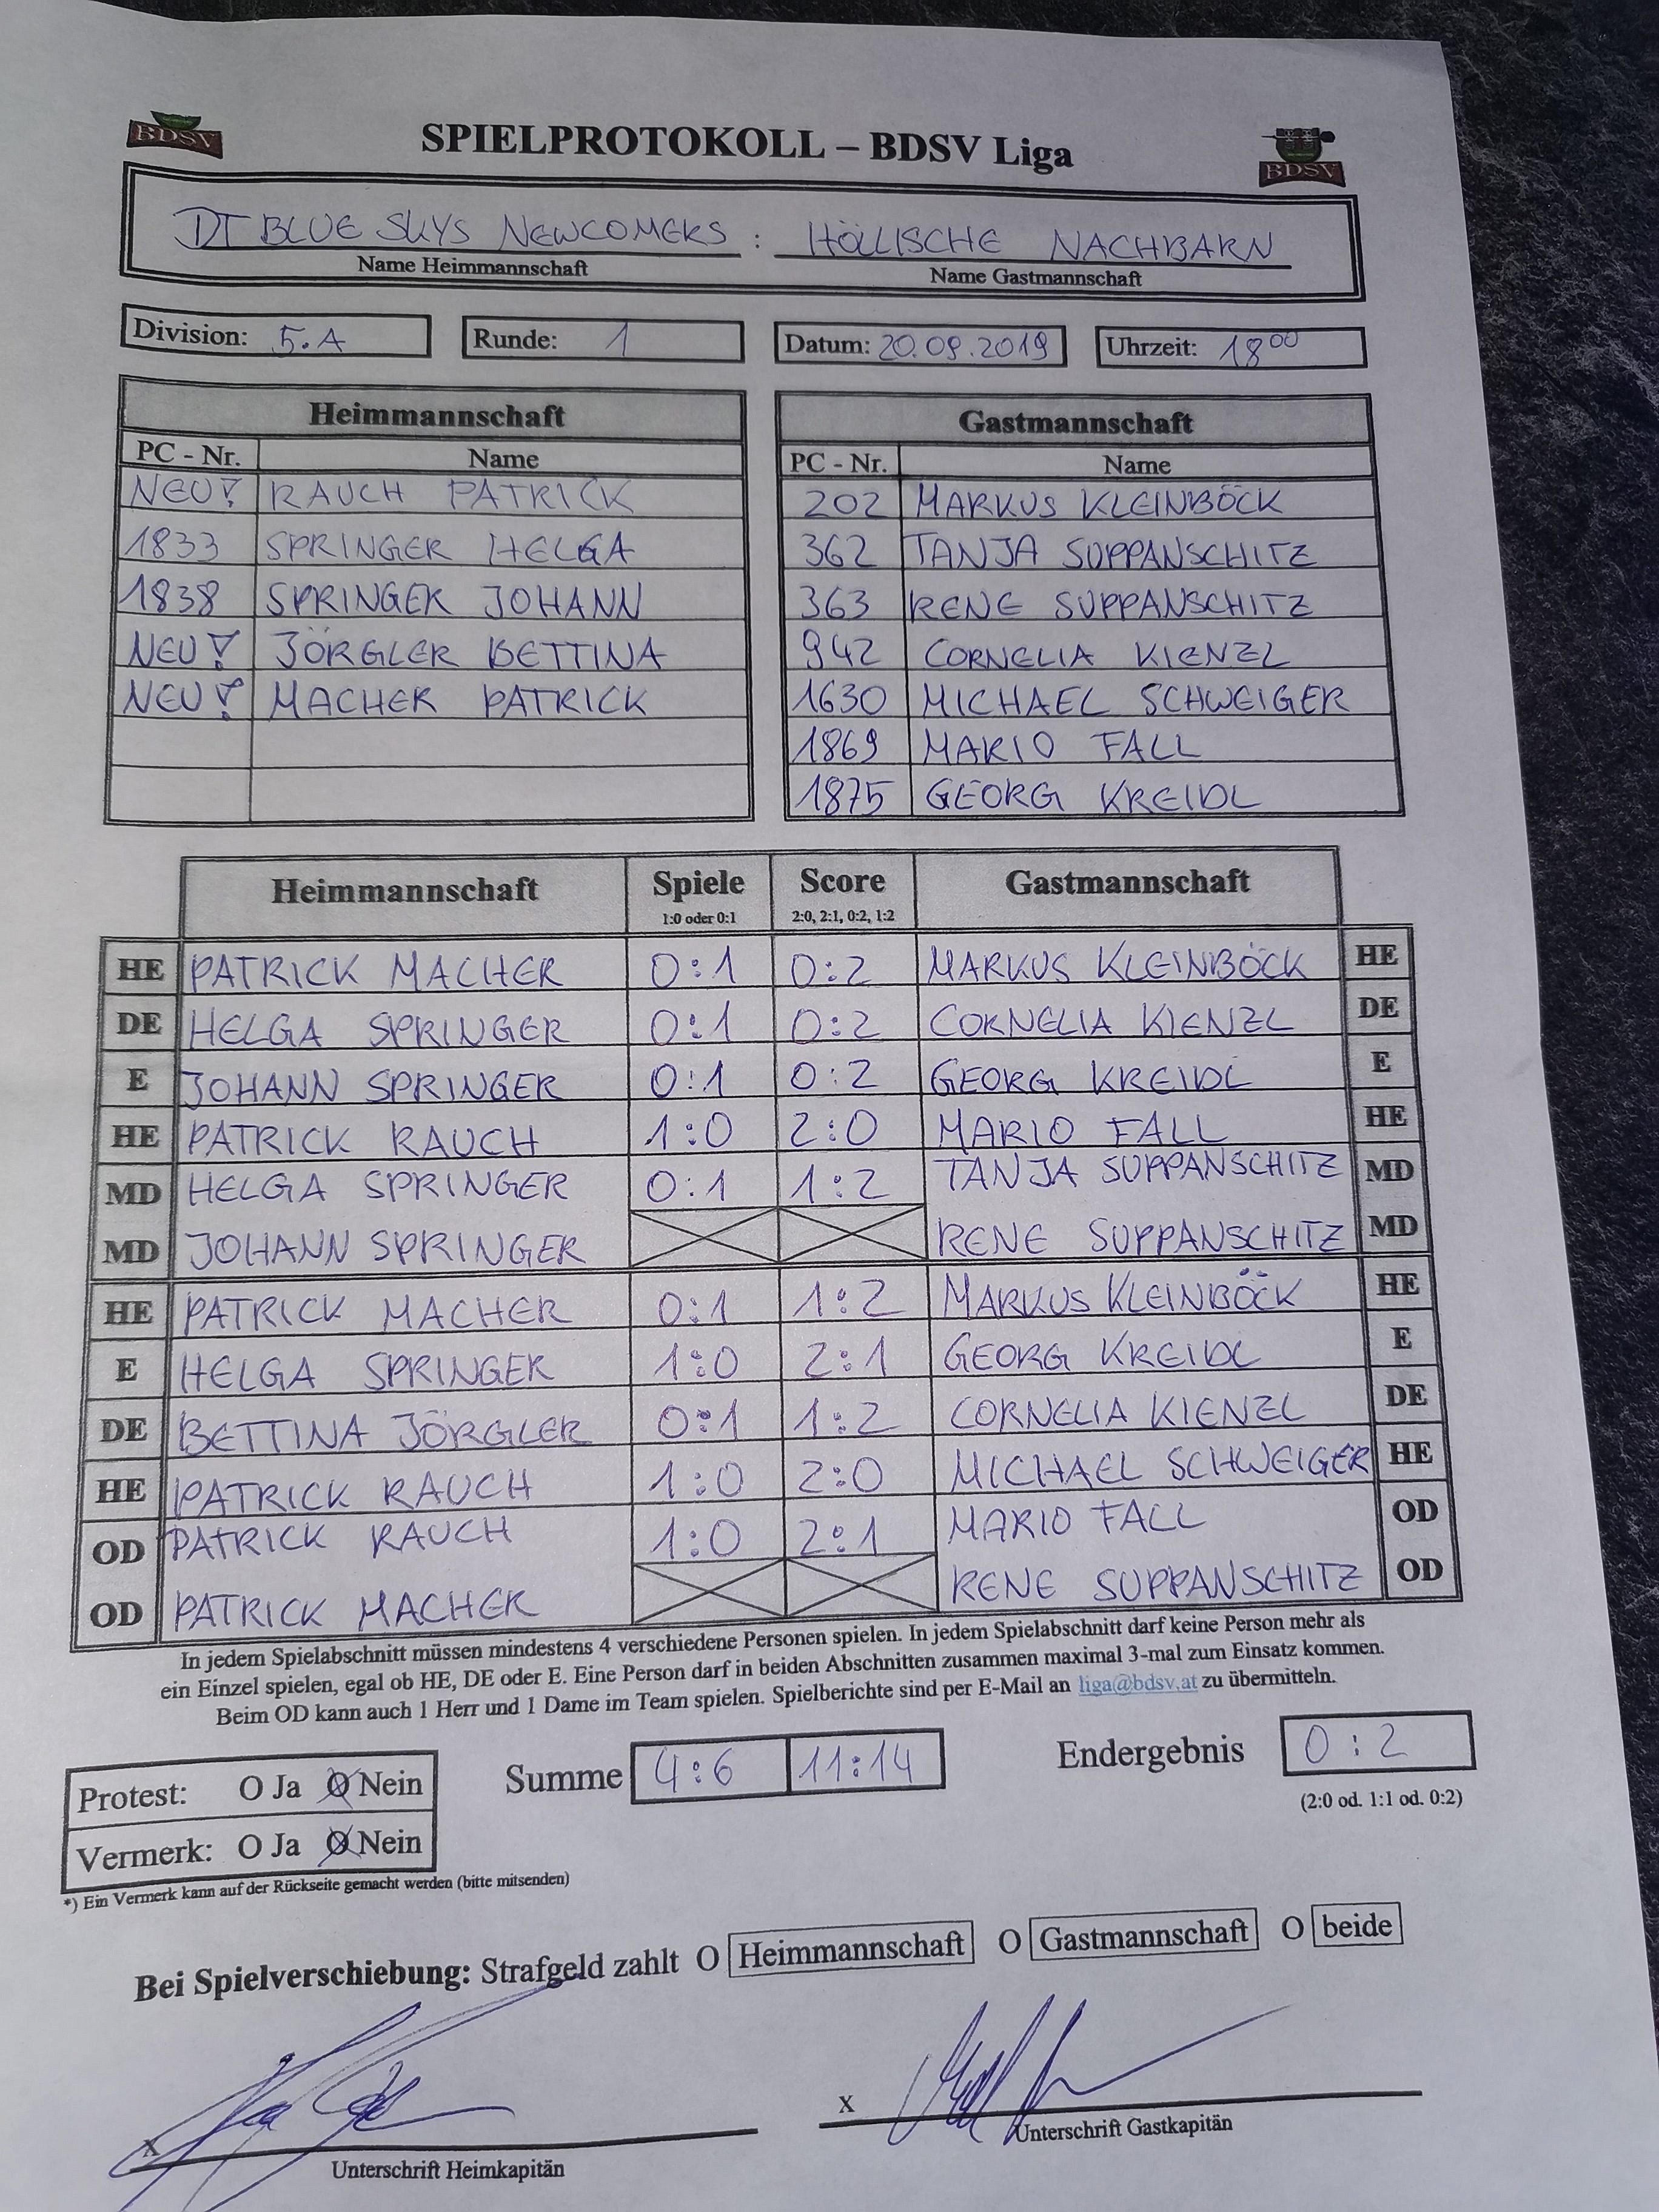 BDSV
SPIELPROTOKOLL – BDSV Liga
BDSV
DT BLUE SKYS NEWCOMERS : HÖLLISCHE NACHBARN
Name Heimmannschaft Name Gastmannschaft
Division: 5.A Runde: 1 Datum: 20.09.2019 Uhrzeit: 18⁰⁰
Heimmannschaft Gastmannschaft
PC - Nr. Name PC - Nr. Name
NEU! RAUCH PATRICK 202 MARKUS KLEINBÖCK
1833 SPRINGER HELGA 362 TANJA SUPPANSCHITZ
1838 SPRINGER JOHANN 363 RENE SUPPANSCHITZ
NEU! JÖRGLER BETTINA 942 CORNELIA KIENZL
NEU! MACHER PATRICK 1630 MICHAEL SCHWEIGER
1869 MARIO FALL
1875 GEORG KREIDL
Heimmannschaft Spiele Score Gastmannschaft
1:0 oder 0:1 2:0, 2:1, 0:2, 1:2
HE PATRICK MACHER 0:1 0:2 MARKUS KLEINBÖCK HE
DE HELGA SPRINGER 0:1 0:2 CORNELIA KIENZL DE
E JOHANN SPRINGER 0:1 0:2 GEORG KREIDL E
HE PATRICK RAUCH 1:0 2:0 MARIO FALL HE
MD HELGA SPRINGER 0:1 1:2 TANJA SUPPANSCHITZ MD
MD JOHANN SPRINGER RENE SUPPANSCHITZ MD
HE PATRICK MACHER 0:1 1:2 MARKUS KLEINBÖCK HE
E HELGA SPRINGER 1:0 2:1 GEORG KREIDL E
DE BETTINA JÖRGLER 0:1 1:2 CORNELIA KIENZL DE
HE PATRICK RAUCH 1:0 2:0 MICHAEL SCHWEIGER HE
OD PATRICK RAUCH 1:0 2:1 MARIO FALL OD
OD PATRICK MACHER RENE SUPPANSCHITZ OD
In jedem Spielabschnitt müssen mindestens 4 verschiedene Personen spielen. In jedem Spielabschnitt darf keine Person mehr als
ein Einzel spielen, egal ob HE, DE oder E. Eine Person darf in beiden Abschnitten zusammen maximal 3-mal zum Einsatz kommen.
Beim OD kann auch 1 Herr und 1 Dame im Team spielen. Spielberichte sind per E-Mail an liga@bdsv.at zu übermitteln.
Protest: O Ja O Nein Summe 4:6 11:14 Endergebnis 0:2
(2:0 od. 1:1 od. 0:2)
Vermerk: O Ja O Nein
*) Ein Vermerk kann auf der Rückseite gemacht werden (bitte mitsenden)
Bei Spielverschiebung: Strafgeld zahlt O Heimmannschaft O Gastmannschaft O beide
x x
Unterschrift Heimkapitän Unterschrift Gastkapitän